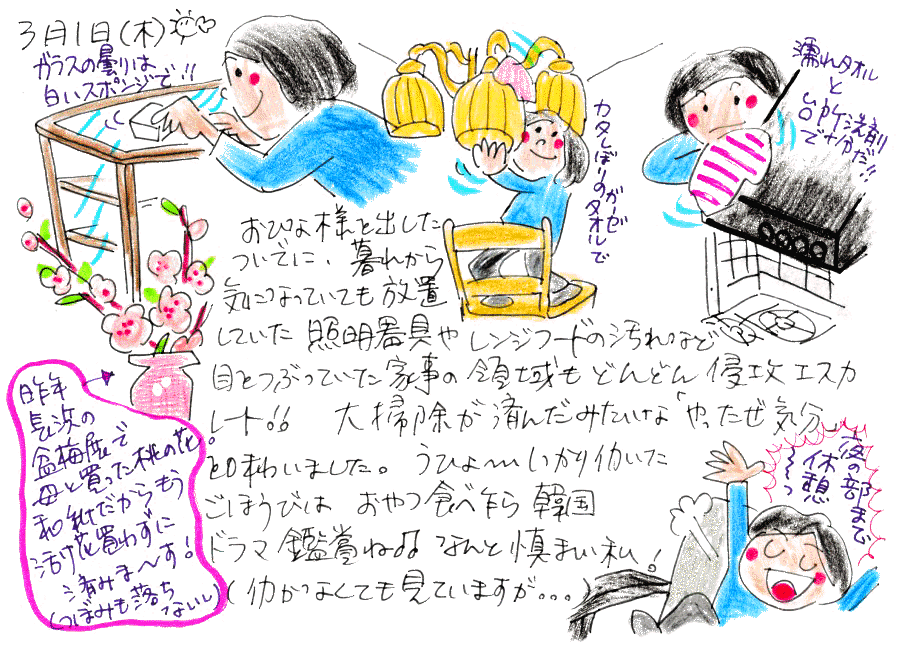 3月1日(木)
ガラスの曇りは
白いスポンジで!!
カタしぼりのガーゼ
タオルで
濡れタオル
と
台所洗剤
で十分だ!!
おひな様を出した
ついでに、暮れから
気になっていても放置
していた照明器具やレンジフードの汚れなど
目をつぶっていた家事の領域もどんどん侵攻エスカ
レート!! 大掃除が済んだみたいな「やったぜ気分」
を味わいました。うひょ〜しっかり働いた
ごほうびは おやつ食べながら韓国
ドラマ鑑賞ね♪♪ なんと慎ましい私!
(働かなくても見ていますが...)
昨年
長浜の
盆梅展で
母と買った桃の花。
和紙だからもう
活け花買わずに
済みま〜す!
(つぼみも落ち
ないし)
夜の部まで
休憩
〜っ